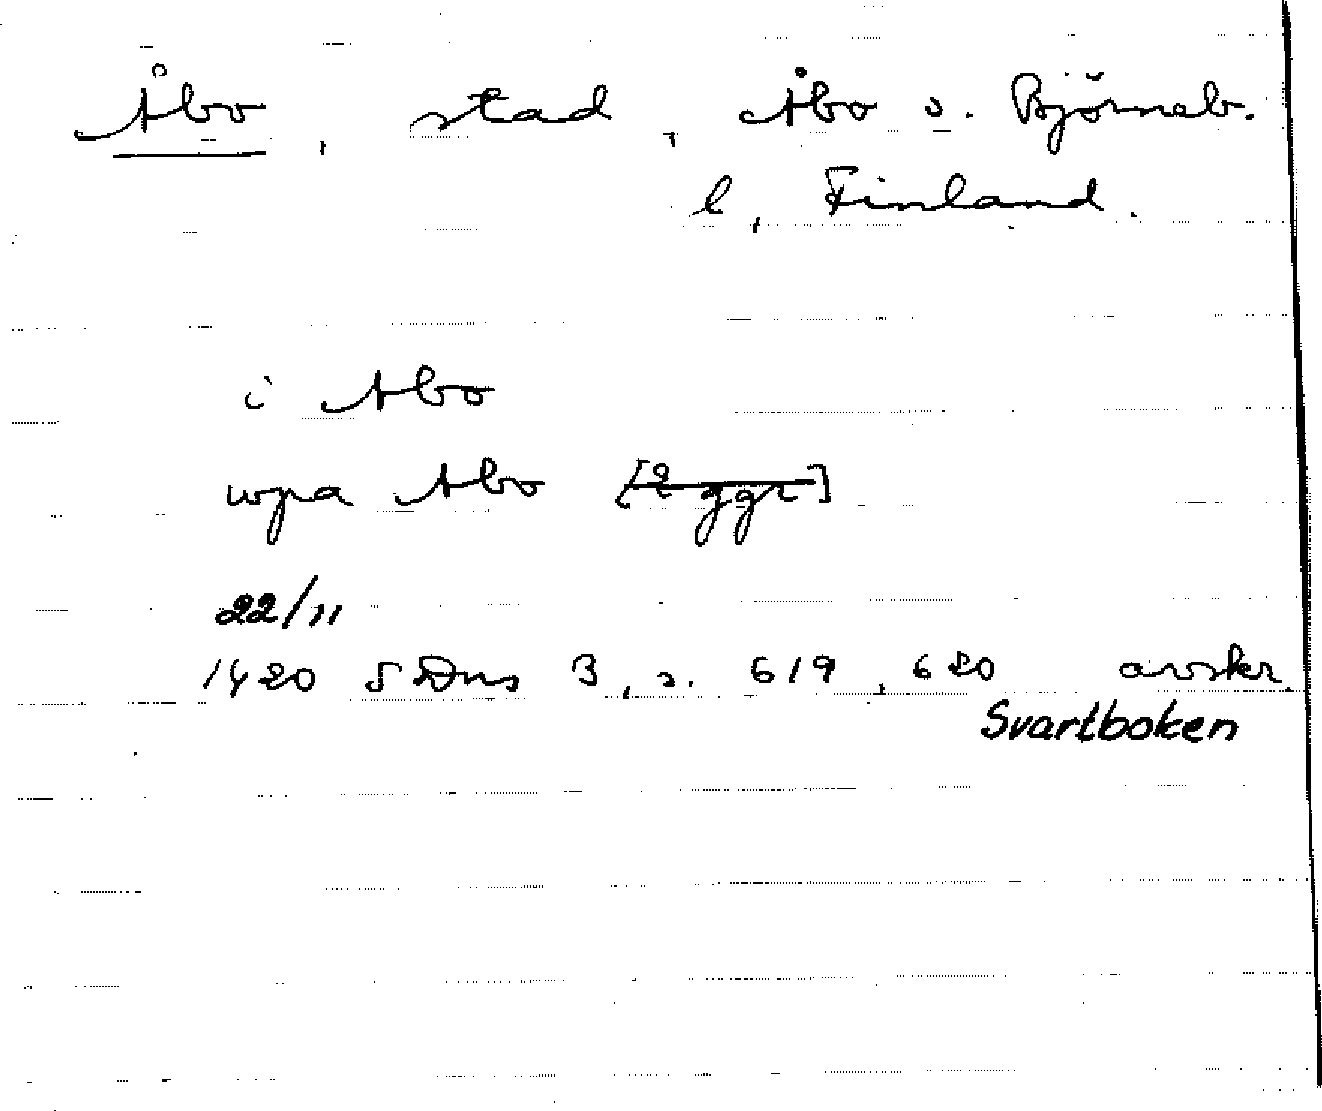 Åbo, stad, Åbo o. Björneb.
l, Finland.
i Abo
wpa Abo [2 ggr]
22/11
1420 SDns 3, s. 619, 620 avskr.
Svartboken